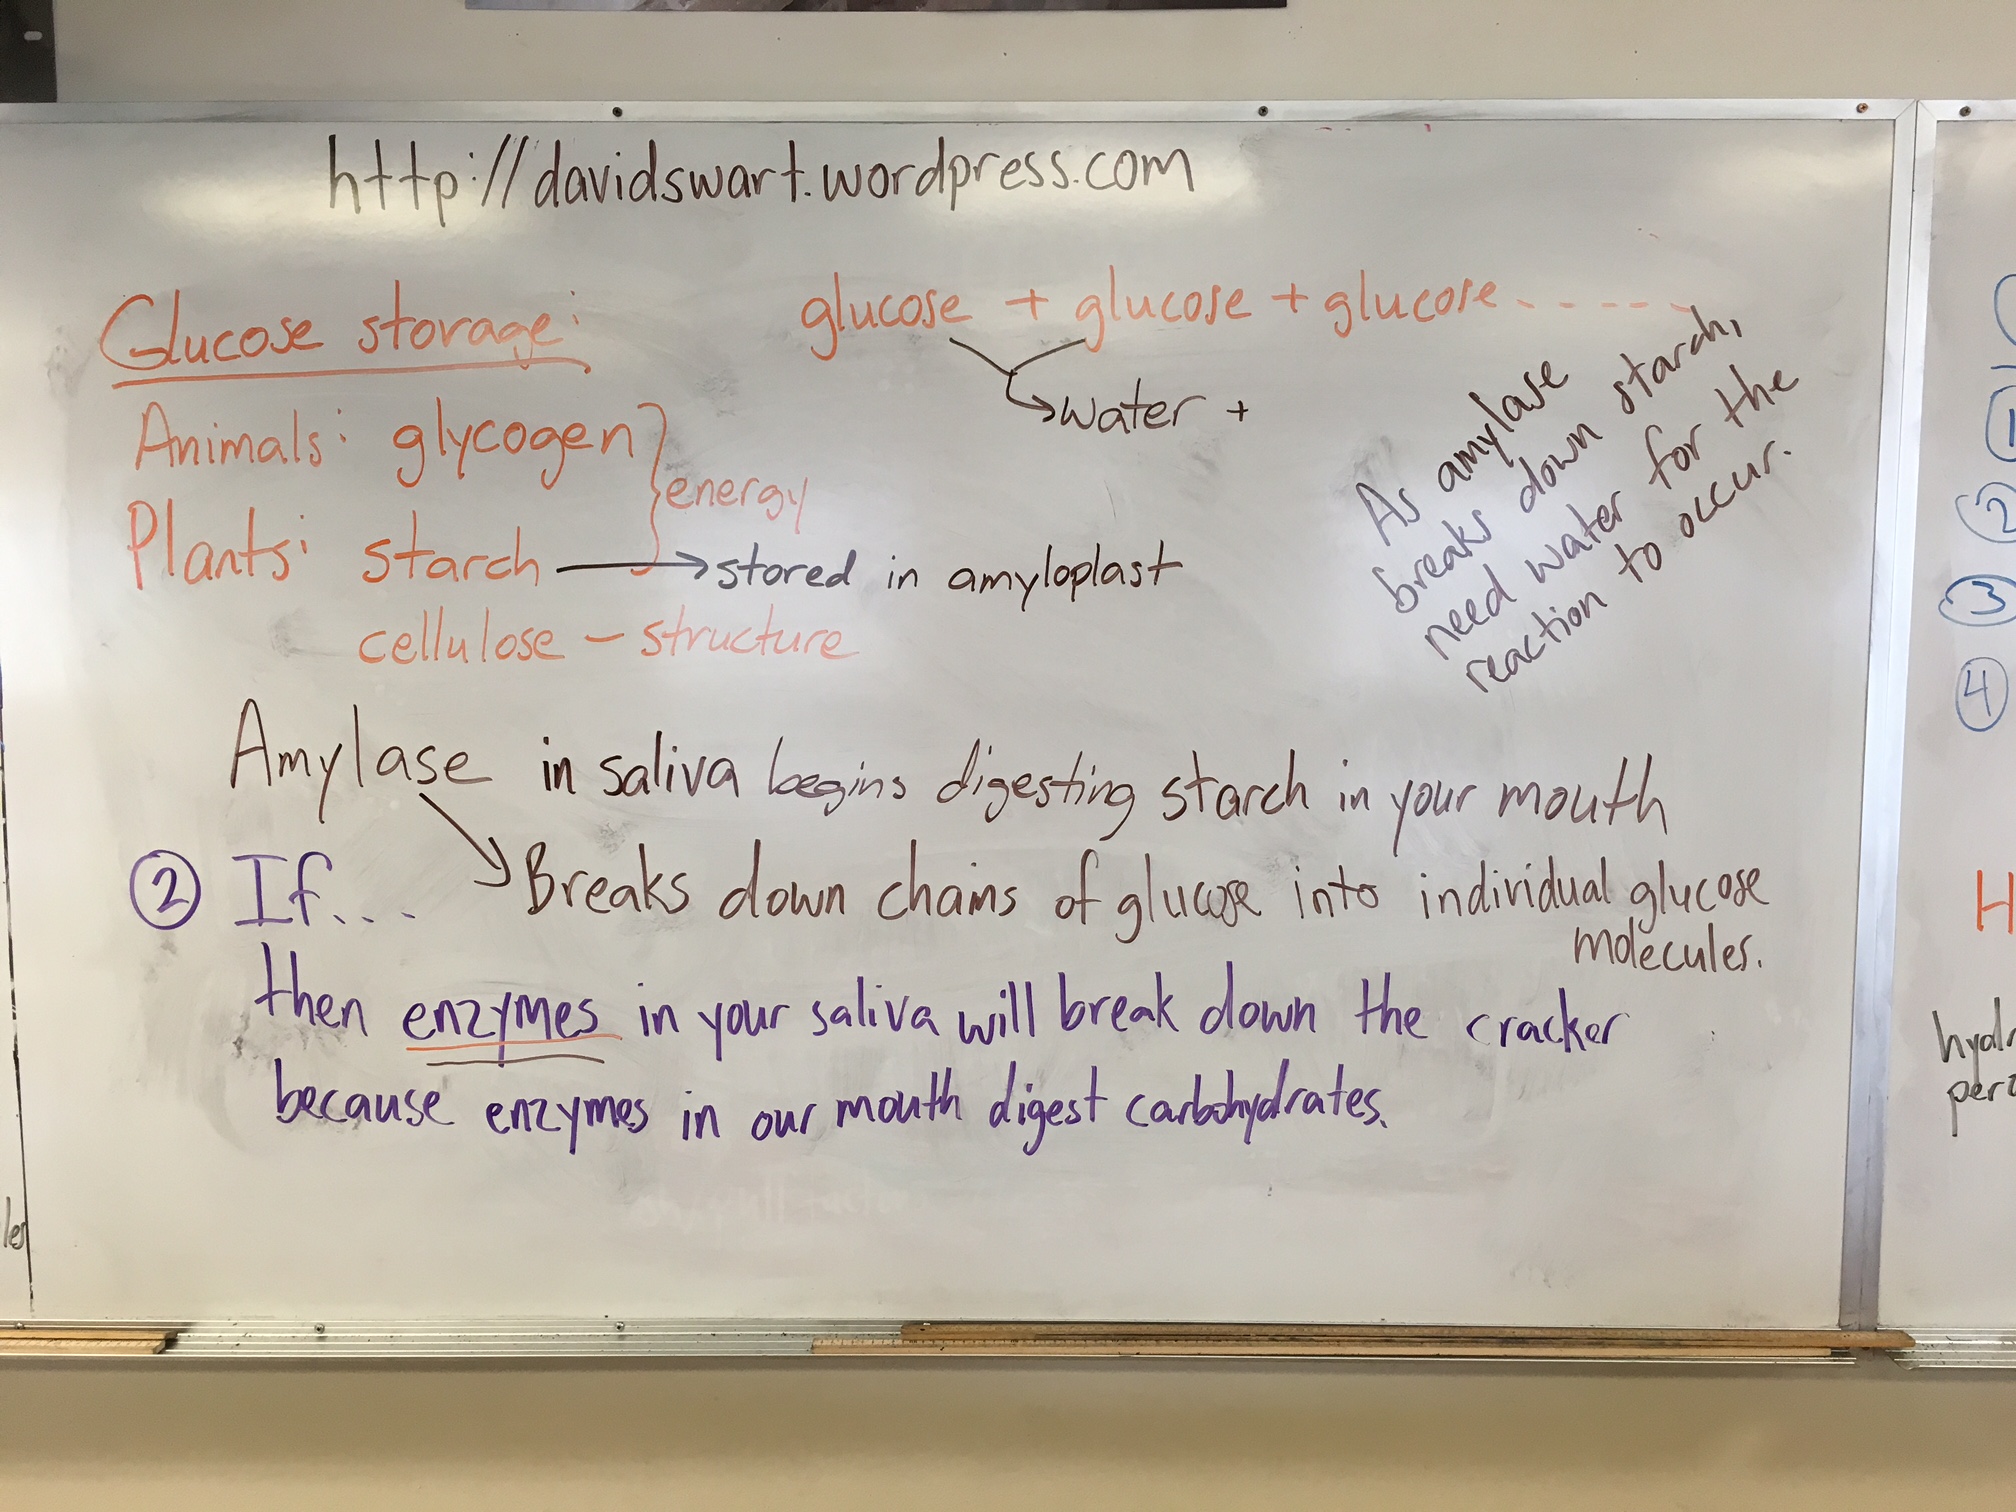 http://davidswart.wordpress.com
Glucose storage:
Animals: glycogen
energy
Plants: starch → stored in amyloplast
cellulose - structure
glucose + glucose + glucose - - - - -
water +
As amylase
breaks down starch,
need water for the
reaction to occur.
Amylase in saliva begins digesting starch in your mouth
Breaks down chains of glucose into individual glucose
molecules.
② If...
then enzymes in your saliva will break down the cracker
because enzymes in our mouth digest carbohydrates.
les
1
②
③
④
H